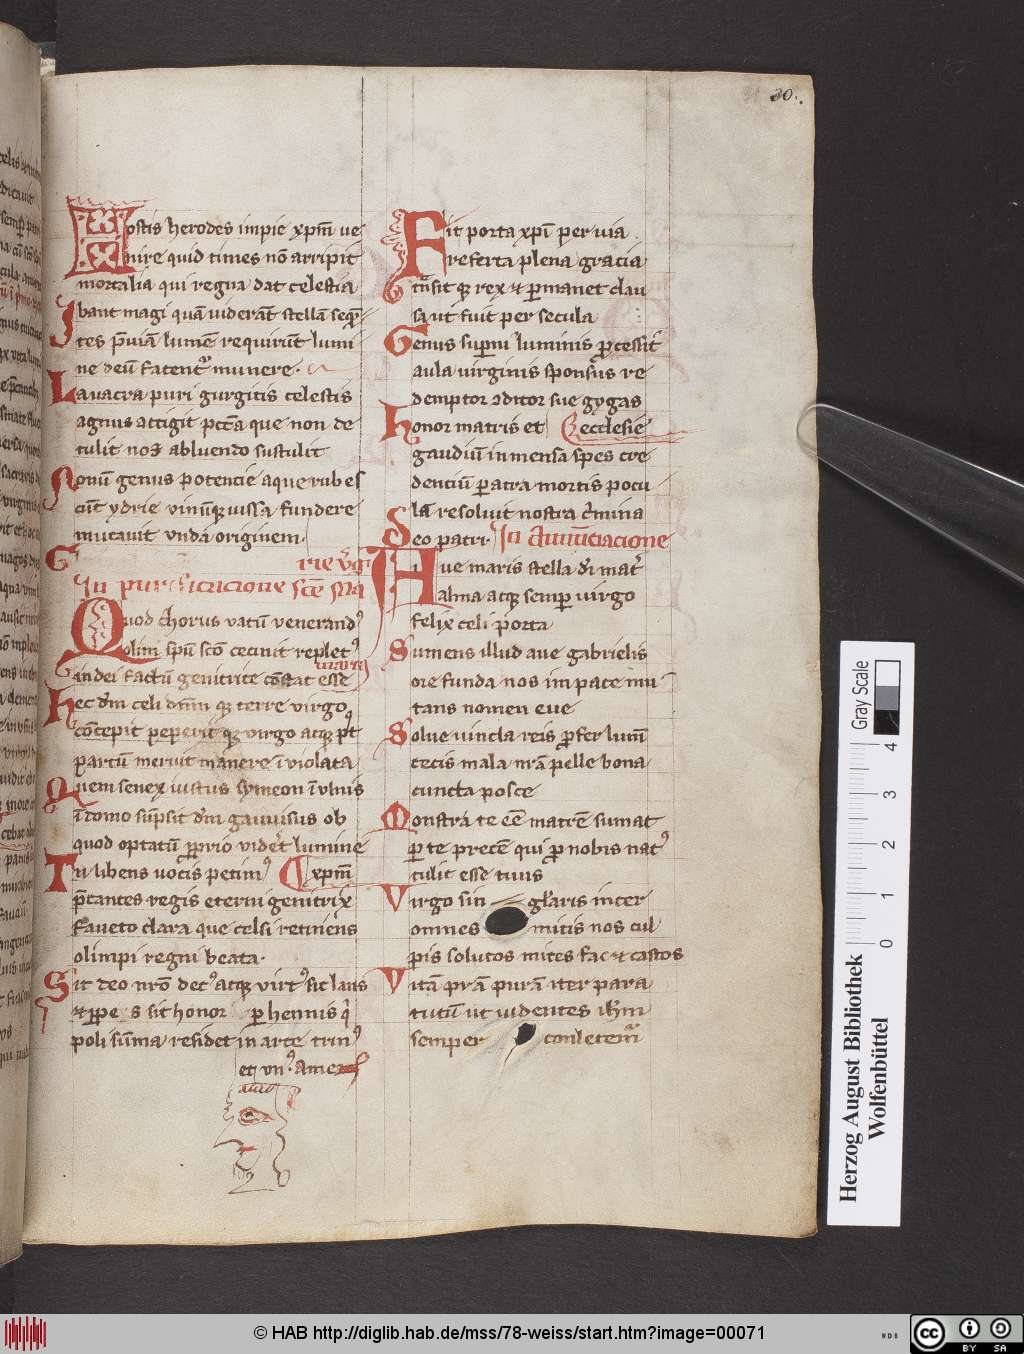 30.
Hostis herodes impie xpm̄ ue
nire quid times nō arripit
mortalia qui regna dat celestia
Ibant magi quā uiderāt stellā seqn̄
tes p̄uiā lumē requirūt lumi
ne deū fatent᷒ munere.
Lauacra puri gurgitis celestis
agnus attigit pctā̄ que non de
tulit nos abluendo sustulit
Nouū genus potencie aque rubes
cūt ydrie vinūqꝫ iussa fundere
mutauit vnda originem.
G
rie v̄gī
In purificacione scē Ma
Quod chorus vatū venerandꝰ
olim spū scō cecinit repletꝰ
maria
in dei factū genitrice cōstat esse
Hec dm̄ celi dn̄m qꝫ terre virgo
cōcepit peperit qꝫ virgo atqꝫ pꝰt
partū meruit manere īviolata
Quem senex iustus symeon ī vlnis
ī domo sūpsit dn̄i gauuisus ob
quod optatū ꝓprio vidēt lumine
Tu libens uocis petimꝰ xpm̄
p̄cantes regis eterni genitrix
faueto clara que celsi retinens
olimpi regni beata.
Sit deo nr̄o decꝰ atqꝫ virtꝰ sit laus
et ꝓpe s sit honor ꝑhennis qͥ
poli sūma residet in arce trinꝰ
et vnꝰ. Amen
Fit porta xp̄i per uia
referta plena gracia
trāsit qꝫ rex et ꝑmanet clau
sa ut fuit per secula
Genus supn̄i luminis ꝓcessit
aula virginis sponsus re
demptor ꝯditor sue gygas
Honor matris et ecclesie
gaudiū inmensa spes cre
denciū ꝑ atra mortis pocu
la resoluit nostra cͥmina
Deo patri. In Annūciacione
Aue maris stella dī mat᷒
alma atqꝫ semꝑ uirgo
felix celi porta
Sumens illud aue gabrielis
ore funda nos in pace mu
tans nomen eue
Solue uincla reis ꝓfer lum̄
cecis mala nr̄a pelle bona
cuncta posce
Monstra te eē matrē sumat
ꝑ te precē qui ꝓ nobis natꝰ
tulit esse tuus
Virgo sin glaris inter
omnes mitis nos cul
pis solutos mites fac et castos
Vitā prā purā iter para
tutū ut uidentes ihm̄
semper conletem᷒
Herzog August Bibliothek
Wolfenbüttel
Gray Scale
0 1 2 3 4
© HAB http://diglib.hab.de/mss/78-weiss/start.htm?image=00071
cc BY SA